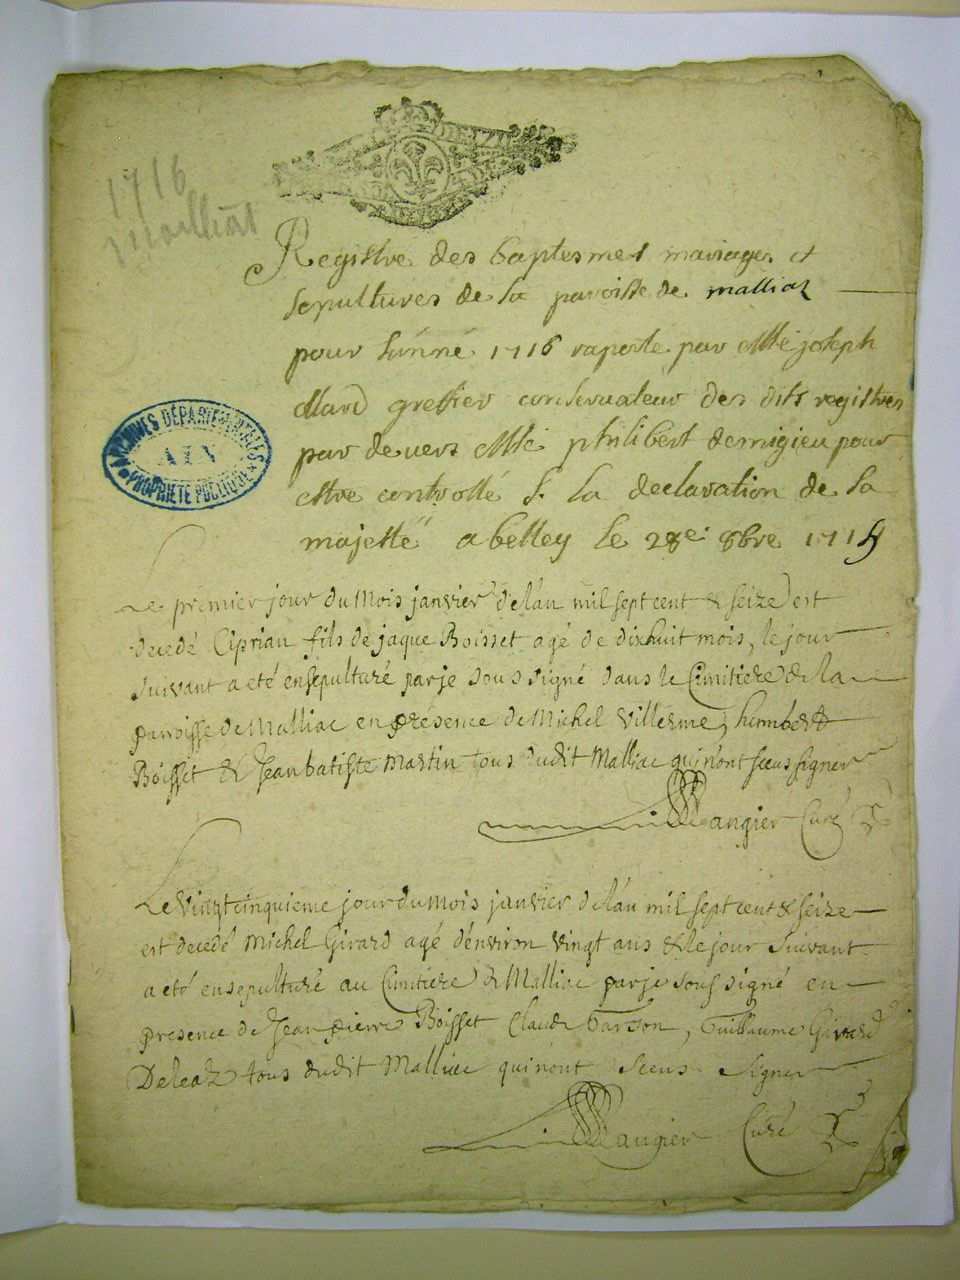 1716
Malliat
Registre des baptesmes mariages et
sepultures de la paroisse de malliat
pour lánné 1716 raporté par Mtre joseph
Mard greffier conservateur des dits registres
par devers Mtre philibert demigieu pour
estre controllé S. la declaration de sa
majesté a belley le 28e 8bre 1715
ARCHIVES DÉPARTEMENTALES
AIN
PROPRIÉTÉ PUBLIQUE
Le premier jour du Mois janvier de lán mil sept cent & seize est
decedé Ciprian fils de jaque Boisset agé de dixhuit mois, le jour
suivant a eté ensepulturé par je sous signé dans le Cimitiere de la
paroisse de Malliac en présence de Michel Villerme, humbert
Boisset & Jean batiste martin tous dudit Malliac qui nónt sceus signer
Maugier Curé
Le Vingt cinquieme jour du mois janvier de lán mil sept cent & seize
est decedé Michel Girard agé dénviron vingt ans & le jour suivant
a eté ensepulturé au Cimitiere de Malliac par je sous signé en
presence de Jean pierre Boisset Claude barson, Guillaume Girard
Deleaz tous dudit Malliac qui nónt sceus signer
Maugier Curé